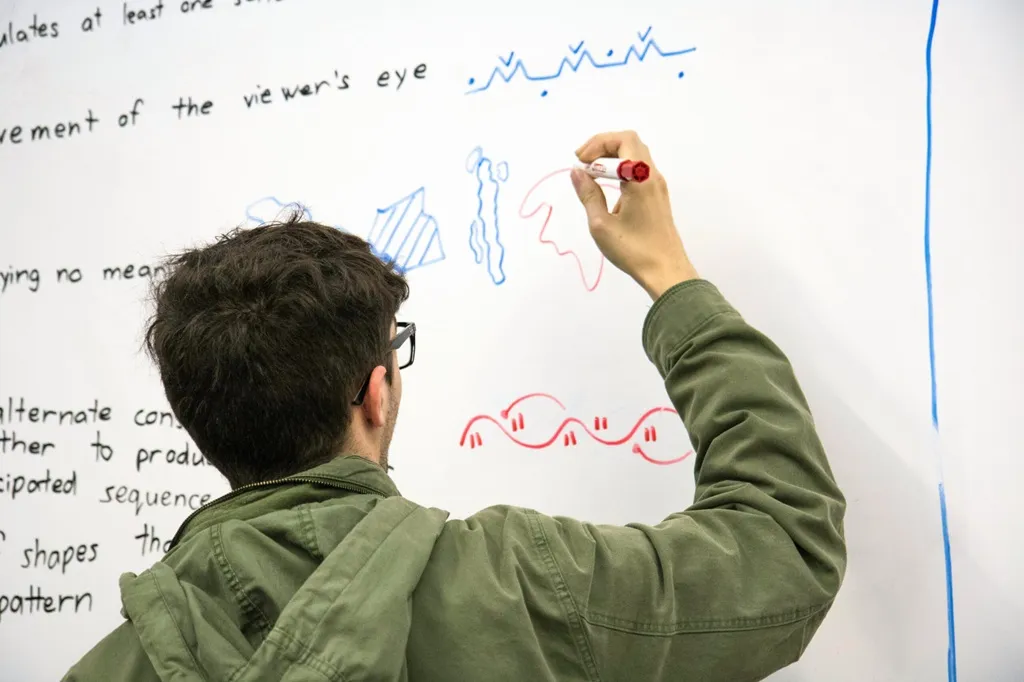 ulates at least one
vement of the viewer's eye
ying no mean
alternate con
ther to produ
cipated sequence
shapes tha
pattern